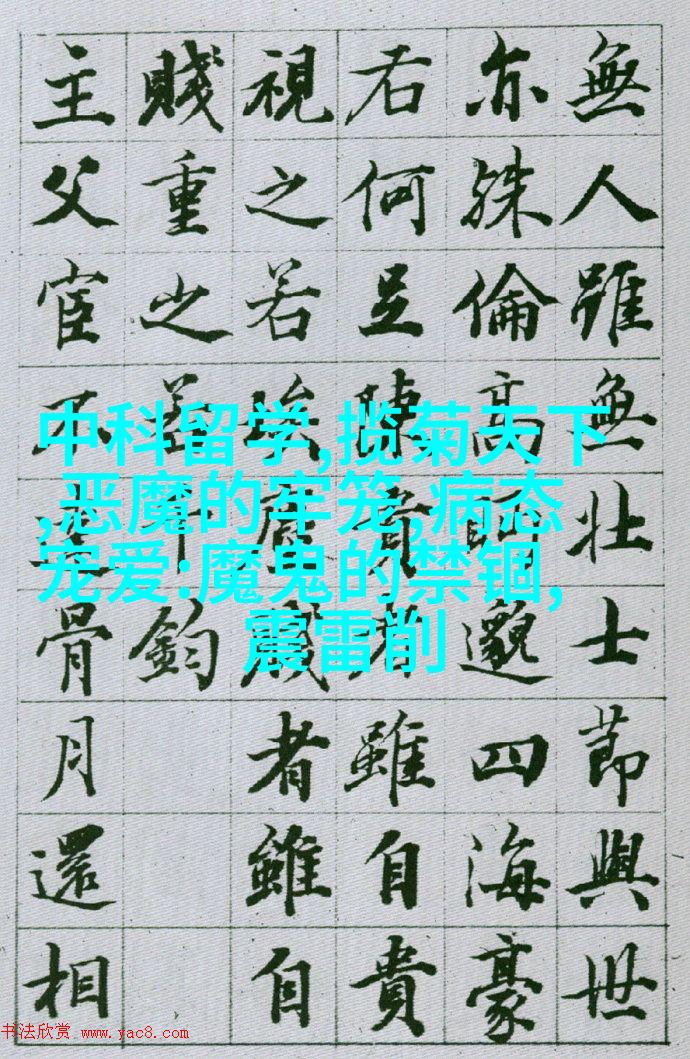 無人雖無壯士節與世
亦殊倫高眄邈四海豪
右何足陳貴者雖自貴
視之若埃塵賤者雖自
賤重之若千鈞
主父宦不骨月還相
中科留学,揽菊天下
,恶魔的牢笼,病态
宠爱:魔鬼的禁锢,
震雷削
书法欣赏 www.yac8.com